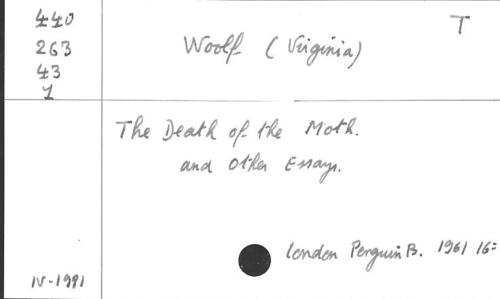 440
263
43
1
T
Woolf (Virginia)
The Death of the Moth.
and Other Essays.
London Penguin B. 1961 16=
IV-1981